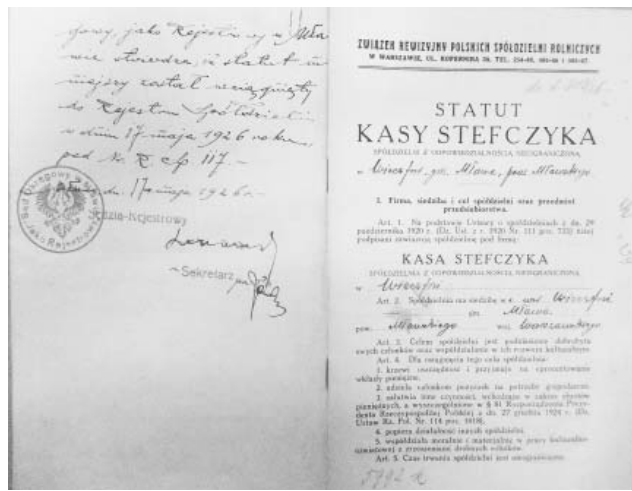 gowy, jako Rejestrowy w Mła
wie stwierdza, iż statut ni
niejszy został wciągnięty
do Rejestru Spółdzielni
w dniu 17 maja 1926 roku,
pod Nr R Sp. 117.-
dn. 17 maja 1926 r.
Sędzia Rejestrowy
Sekretarz
Sąd Okręgowy w Mławie
Jako Rejestrowy
ZWIĄZEK REWIZYJNY POLSKICH SPÓŁDZIELNI ROLNICZYCH
W WARSZAWIE, UL. KOPERNIKA 30. TEL.
STATUT
KASY STEFCZYKA
SPÓŁDZIELNI Z ODPOWIEDZIALNOŚCIĄ NIEOGRANICZONĄ
w Wieczfni, gm. Mława, pow. Mławskiego
I. Firma, siedziba i cel spółdzielni oraz przedmiot
przedsiębiorstwa.
Art. 1. Na podstawie Ustawy o spółdzielniach z dn. 29
października 1920 r. (Dz. Ust. z r. 1920 Nr. 111 poz. 733) niżej
podpisani zawiązują spółdzielnię pod firmą:
KASA STEFCZYKA
SPÓŁDZIELNIA Z ODPOWIEDZIALNOŚCIĄ NIEOGRANICZONĄ
w Wieczfni
Art. 2. Spółdzielnia ma siedzibę w Wieczfni
gm. Mława
pow. Mławskiego woj. Warszawskiego
Art. 3. Celem spółdzielni jest podniesienie dobrobytu
swych członków oraz współdziałanie w ich rozwoju kulturalnym.
Art. 4. Dla osiągnięcia tego celu spółdzielnia:
1. krzewi oszczędność i przyjmuje na oprocentowanie
wkłady pieniężne,
2. udziela członkom pożyczek na potrzeby gospodarcze,
3. załatwia inne czynności, wchodzące w zakres obrotów
pieniężnych, a wyszczególnione w § 81 Rozporządzenia Prezy-
denta Rzeczypospolitej Polskiej z dn. 27 grudnia 1924 r. (Dz.
Ustaw Rz. Pol. Nr. 114 poz. 1018),
4. popiera działalność innych spółdzielni,
5. współdziała moralnie i materialnie w pracy kulturalno-
oświatowej z zrzeszeniami drobnych rolników.
Art. 5. Czas trwania spółdzielni jest nieograniczony.
5992